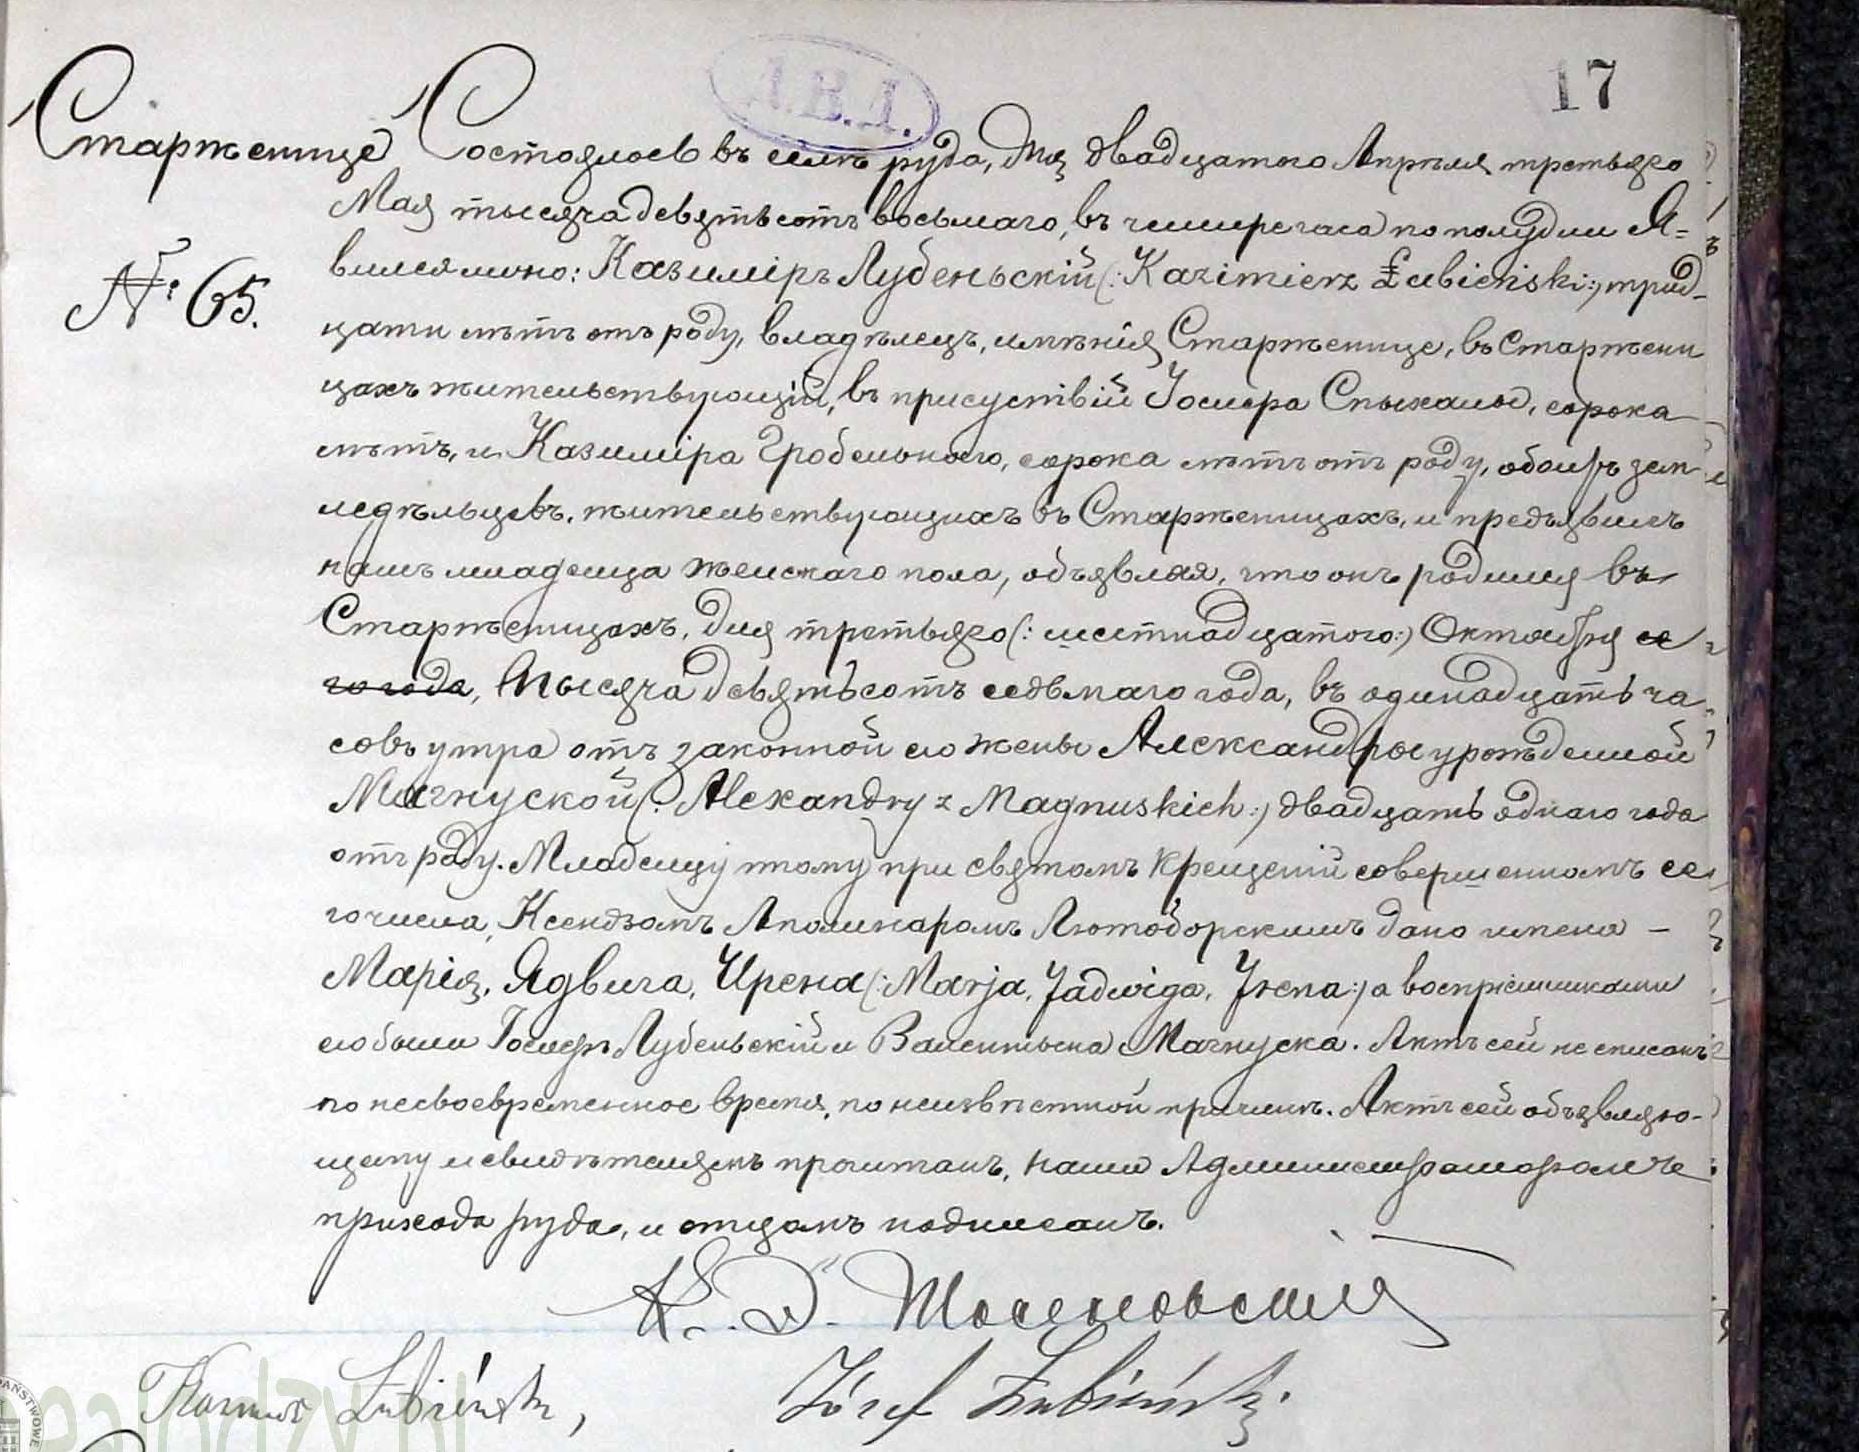 А.В.Д.
17
Старженице Состоялось въ селѣ Руда, дня двадцатаго Апрѣля третьяго
Мая тысяча девятьсотъ восьмаго, въ четыре часа по полудни Я=
№ 65. вился лично: Казиміръ Лубеньскій (: Kazimierz Łubieński :) трид-
цати лѣтъ отъ роду, владѣлецъ, имѣнія Старженице, въ Старжени
цахъ жительствующій, въ присутствіи Іосифа Спыхалы, сорока
лѣтъ, и Казиміра Гробельнаго, сорока лѣтъ отъ роду, обоихъ зем
ледѣльцевъ, жительствующихъ въ Старженицахъ, и предъявилъ
намъ младенца женскаго пола, объявляя, что онъ родился въ
Старженицахъ, дня третьяго (: шестнадцатого :) Октября се
го года, тысяча девятьсотъ седьмаго года, въ одинадцать ча
совъ утра отъ законной его жены Александры урожденной
Магнуской (: Alexandry z Magnuskich :) двадцать однаго года
отъ роду. Младенцу тому при святомъ крещеніи совершенномъ се
го числа, Ксендзомъ Аполинаромъ Лютоборскимъ дано имена –
Марія, Ядвига, Ирена (: Marja, Jadwiga, Irena :) а воспріемниками
его были Іосифъ Лубеньскій и Валентына Магнуска. Актъ сей не списанъ
по несвоевременное время, по неизвѣстной причинѣ. Актъ сей объявляю-
щему и свидѣтелямъ прочитанъ, нами Администраторомъ
прихода Руда, и отцомъ подписанъ.
Łubieński,
Józef Łubieński